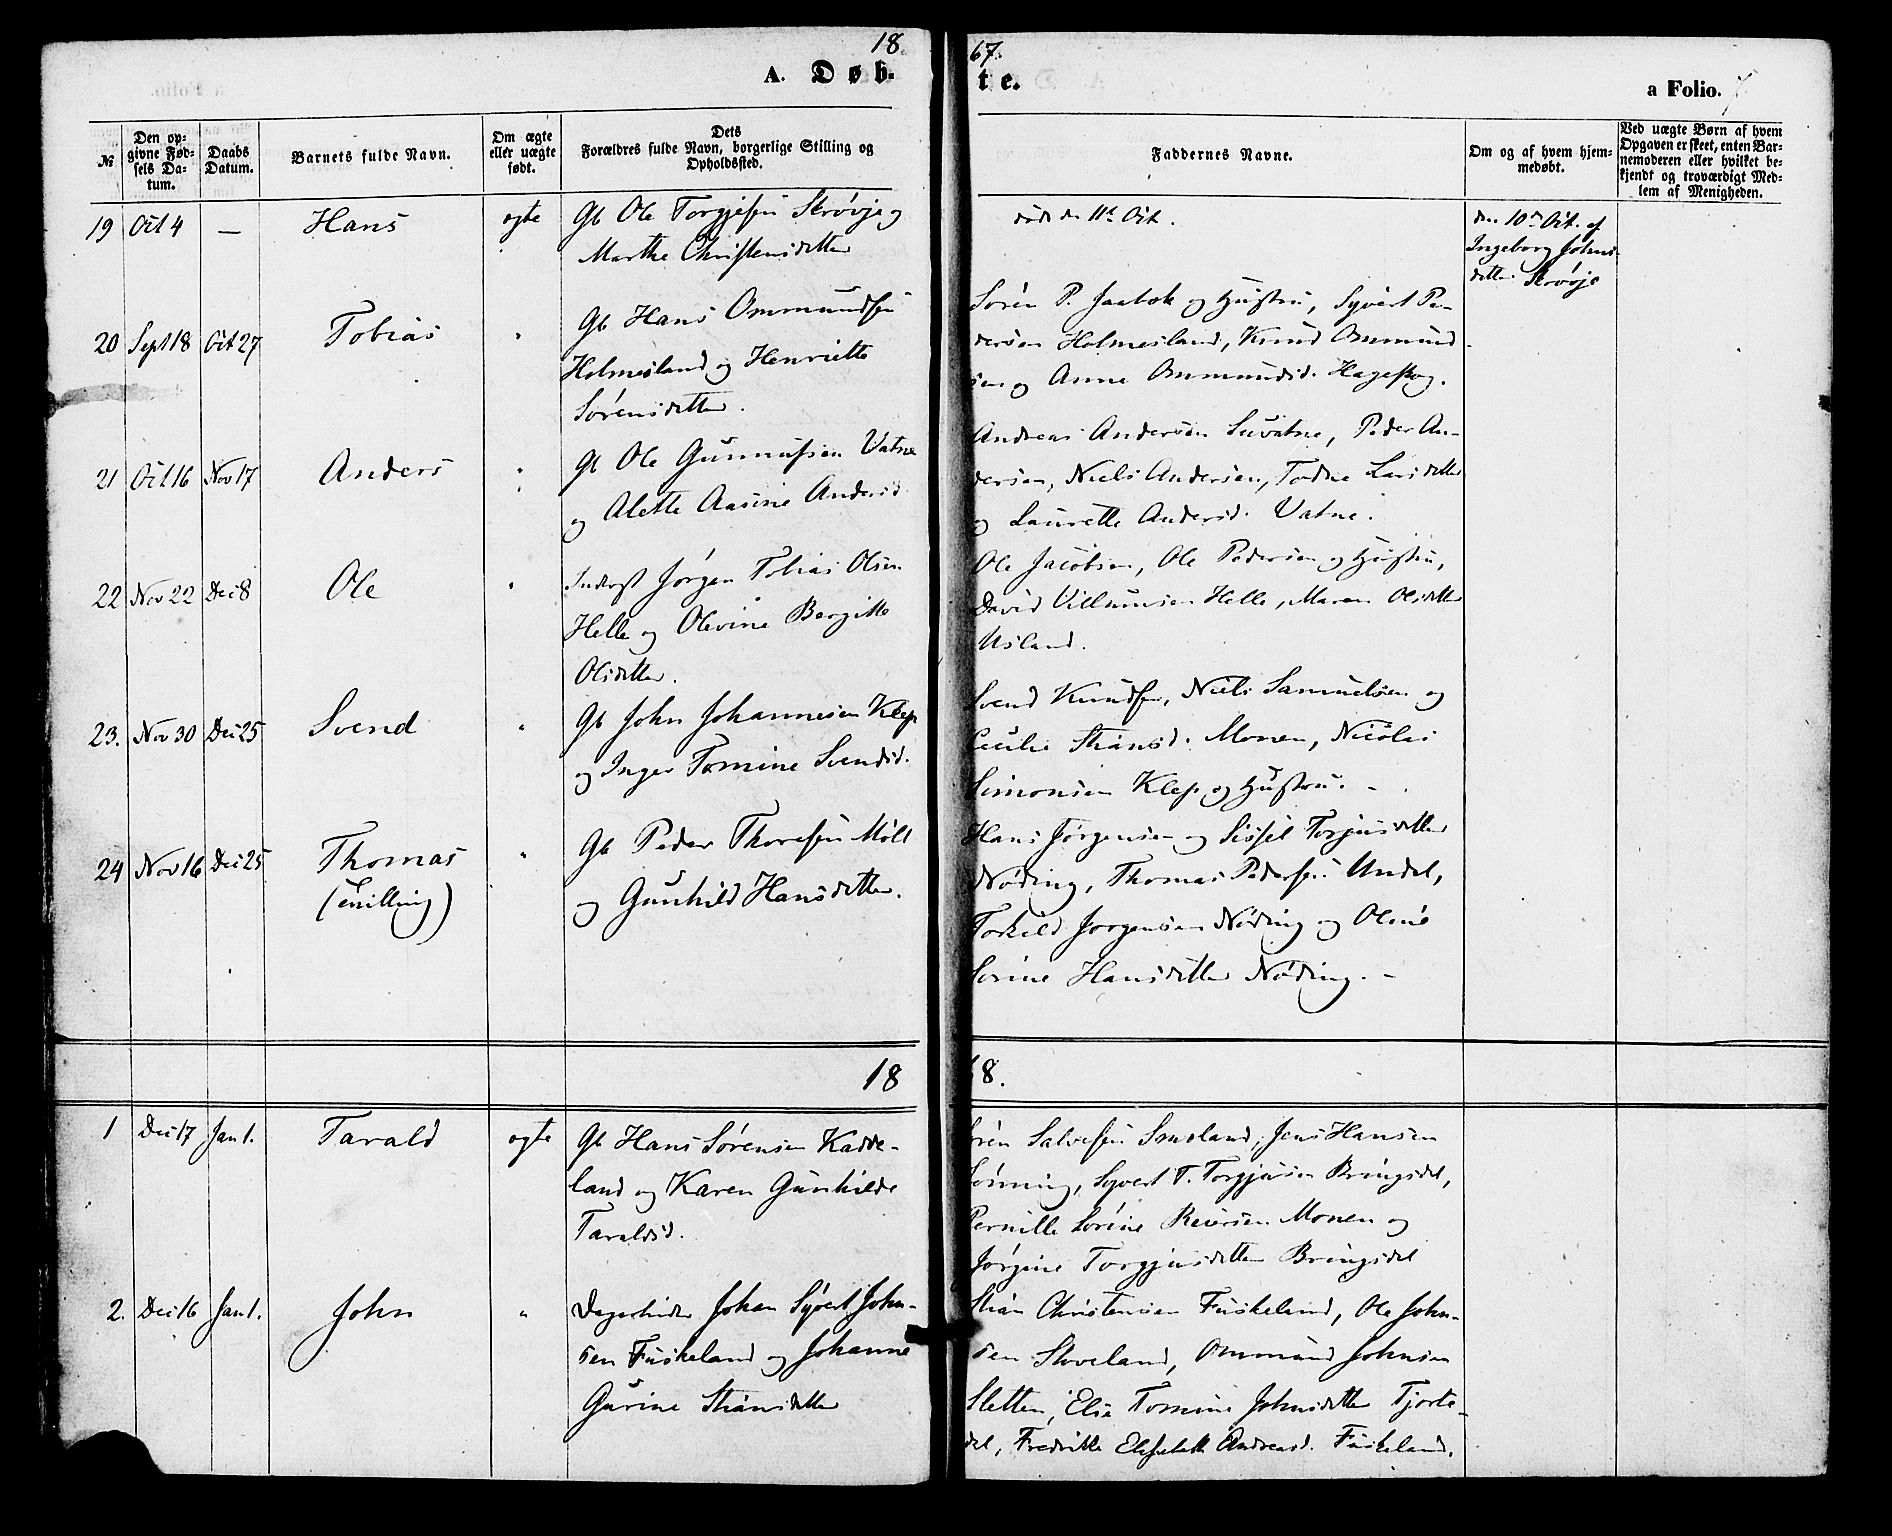 18 67.
A. Døb- te. a Folio. 7
№
Den opgivne Fødsels Datum.
Daabs Datum.
Barnets fulde Navn.
Om ægte eller uægte født.
Dets Forældres fulde Navn, borgerlige Stilling og Opholdssted.
Faddernes Navne.
Om og af hvem hjemmedøbt.
Ved uægte Børn af hvem Opgaven er skeet, enten Barnemoderen eller hvilket bekjendt og troværdigt Medlem af Menigheden.
19 Oct 4 — Hans ægte
Gb Ole Torgjesen Skrøvje og
Marthe Christensdatter
død d. 11t Oct.
den 10de Oct. af
Ingeborg Johns-
datter Skrøvje
20 Sept 18 Oct 27 Tobias "
Gb Hans Ommundsen
Holmesland og Henriette
Sørensdatter.
Søren P. Jaabæk og Hustru, Syvert Pe-
dersen Holmesland, Knud Ommund-
sen og Anne Ommundsd. Hageskog.
21 Oct 16 Nov 17 Anders "
Gb Ole Gunnufsen Vatne
og Alette Aasine Andersd
Andreas Andersen Luvatne, Peder An-
dersen, Niels Andersen, Todne Larsdatter
og Laurette Andersd. Vatne.
22 Nov 22 Dec 8 Ole "
Inderst Jørgen Tobias Olsen
Helle og Olevine Bergitte
Olsdatter.
Ole Jacobsen, Ole Pedersen og Hustru,
David Villumsen Helle, Maren Olsdatter
Usland.
23. Nov 30 Dec 25 Svend "
Gb John Johannesen Klep
og Inger Tomine Svendsd.
Svend Knudsen, Niels Samuelsen og
Cecilie Stiansd. Monen, Nicolai
Simonsen Klep og Hustru. -
24 Nov 16 Dec 25 Thomas "
(tvilling)
Gb Peder Thoresen Møll
og Gunhild Hansdatter.
Hans Jørgensen og Sissel Torjusdatter
Nøding, Thomas Pedersen Undal,
Torkeld Jørgensen Nøding og Oline
Sorine Hansdatter Nøding. -
18 68.
1 Dec 17 Jan 1. Tarald ægte
Gb Hans Sørensen Kadde-
land og Karen Gunhilde
Taraldsd.
Søren Salvesen Smsland, Jens Hansen
Lønning, Syvert T. Torgjusen Bringsdal,
Pernille Sorine Reiersen Monen og
Jørgine Torgjusdatter Bringsdal
2. Dec 16 Jan 1. John "
Dagarbeider Johan Syvert John-
sen Fuskeland og Johanne
Gurine Stiansdatter
Stian Christensen Fuskeland, Ole John-
sen Skoveland, Ommund Johnsen
Sletten, Else Tomine Johnsdatter Tjorte-
dal, Fredrikke Elisabeth Andreasd. Fuskeland.